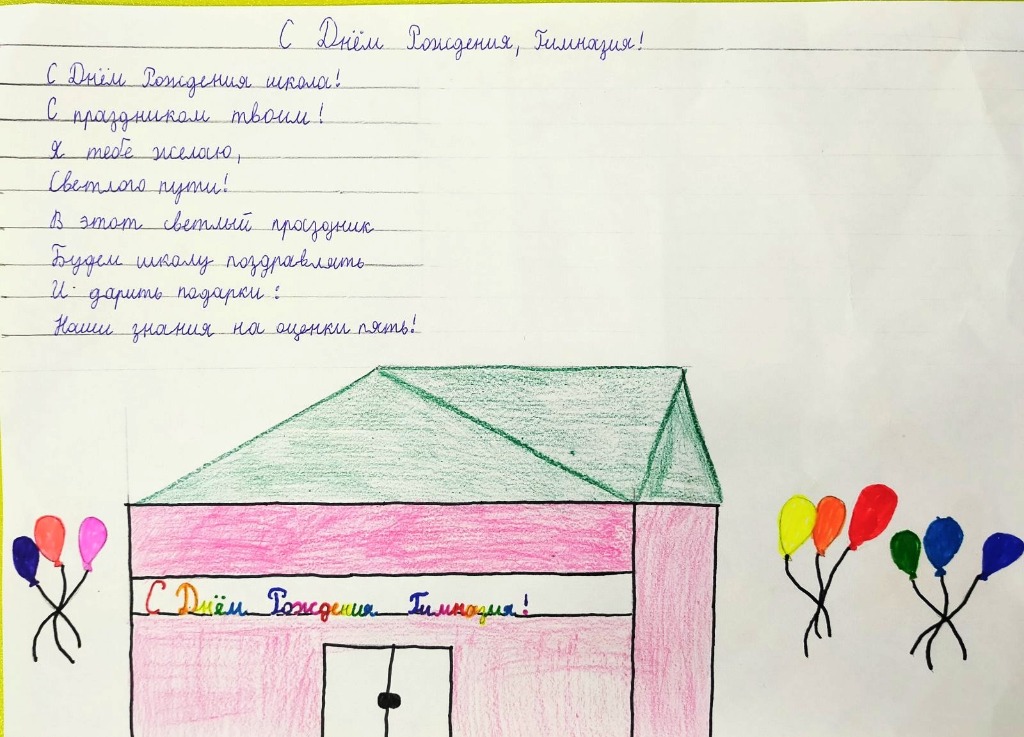 С Днём Рождения, Гимназия!
С Днём Рождения школа!
С праздником твоим!
Я тебе желаю,
Светлого пути!
В этот светлый праздник
Будем школу поздравлять
И дарить подарки:
Наши знания на оценки пять!
С Днём Рождения Гимназия!